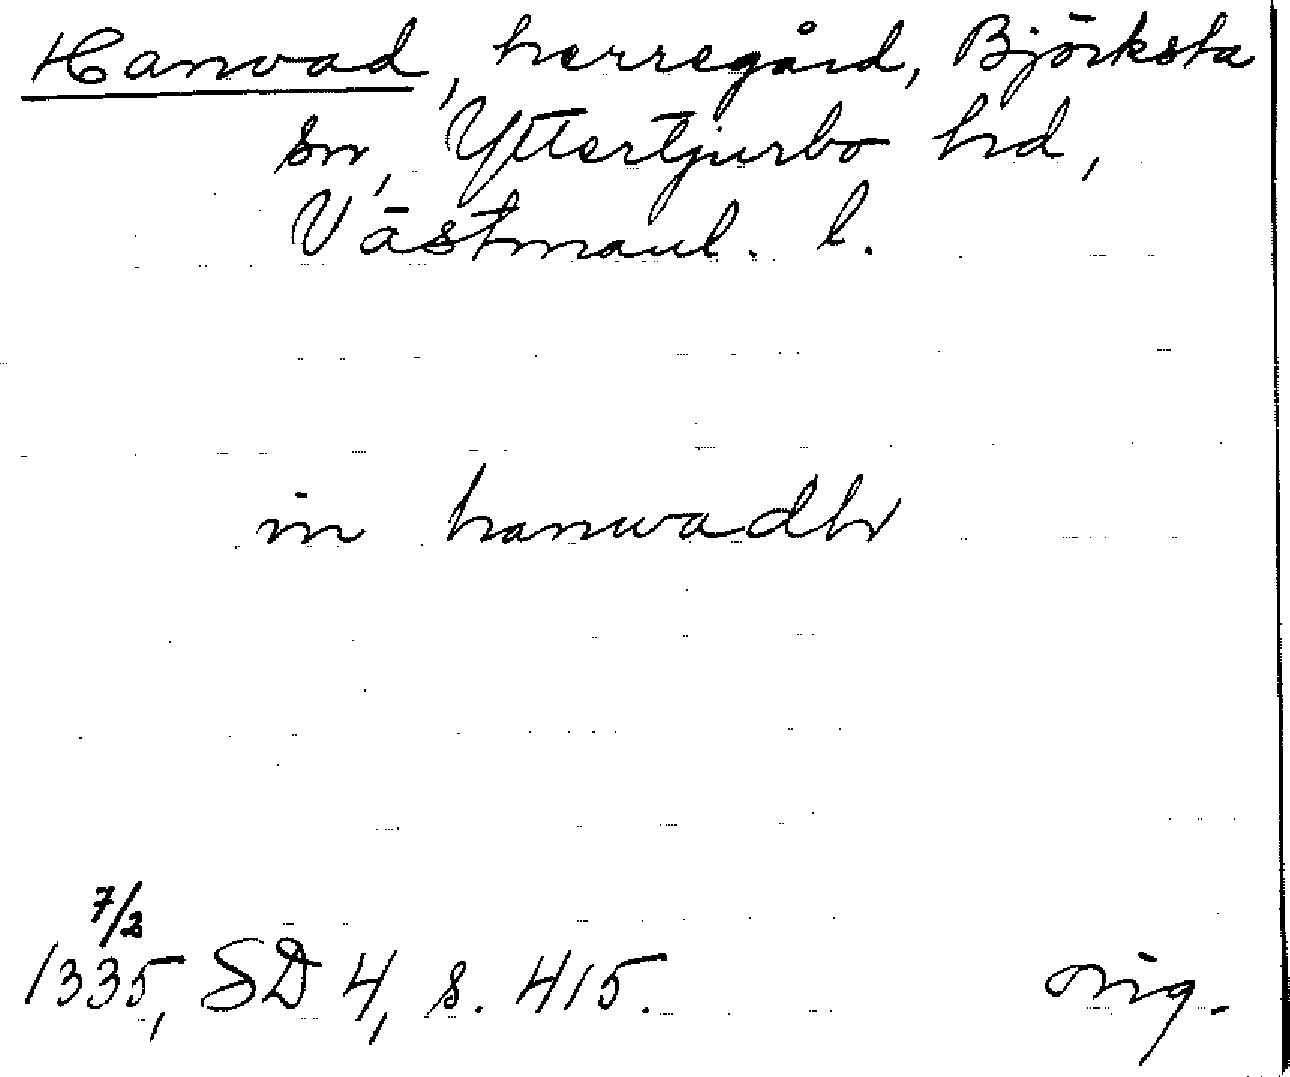 Hanvad, herregård, Björksta
sn, Yttertjurbo hd,
Västmanl. l.
in hanwadhr
7/2
1335, SD 4, s. 415. orig.